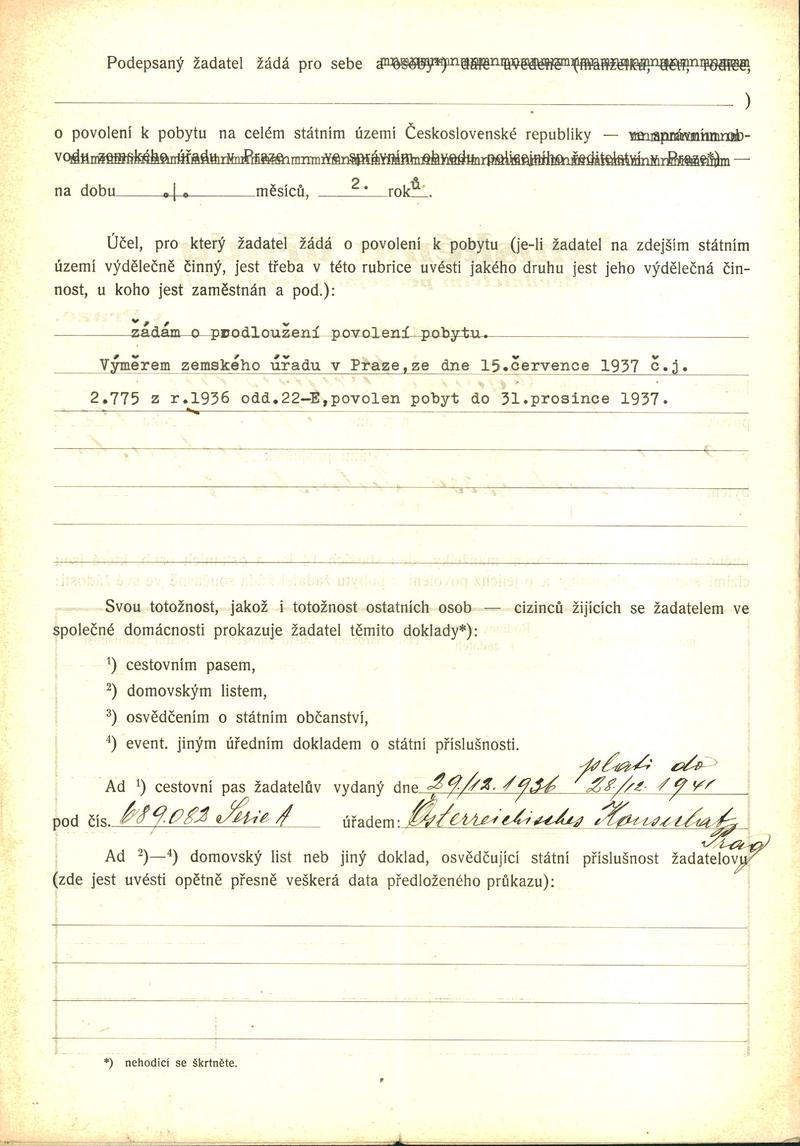 Podepsaný žadatel žádá pro sebe a osoby*) dále uvedené (manželku, děti, rodiče,
)
o povolení k pobytu na celém státním území Československé republiky — ve správním ob-
vodu zemského úřadu v Praze — ve správním obvodu policejního ředitelství v Praze*) —
na dobu .|. měsíců, 2. roků.
Účel, pro který žadatel žádá o povolení k pobytu (je-li žadatel na zdejším státním
území výdělečně činný, jest třeba v této rubrice uvésti jakého druhu jest jeho výdělečná čin-
nost, u koho jest zaměstnán a pod.):
žádám o prodloužení povolení pobytu.
Výměrem zemského úřadu v Praze,ze dne 15.července 1937 č.j.
2.775 z r.1936 odd.22-E,povolen pobyt do 31.prosince 1937.
Svou totožnost, jakož i totožnost ostatních osob — cizinců žijících se žadatelem ve
společné domácnosti prokazuje žadatel těmito doklady*):
¹) cestovním pasem,
²) domovským listem,
³) osvědčením o státním občanství,
⁴) event. jiným úředním dokladem o státní příslušnosti.
platí do
Ad ¹) cestovní pas žadatelův vydaný dne 29./12. 1936 28./12. 1941
pod čís. 689.082 Serie A úřadem: Österreichisches Konsulat
Prag
Ad ²)—⁴) domovský list neb jiný doklad, osvědčující státní příslušnost žadatelovu
(zde jest uvésti opětně přesně veškerá data předloženého průkazu):
*) nehodící se škrtněte.